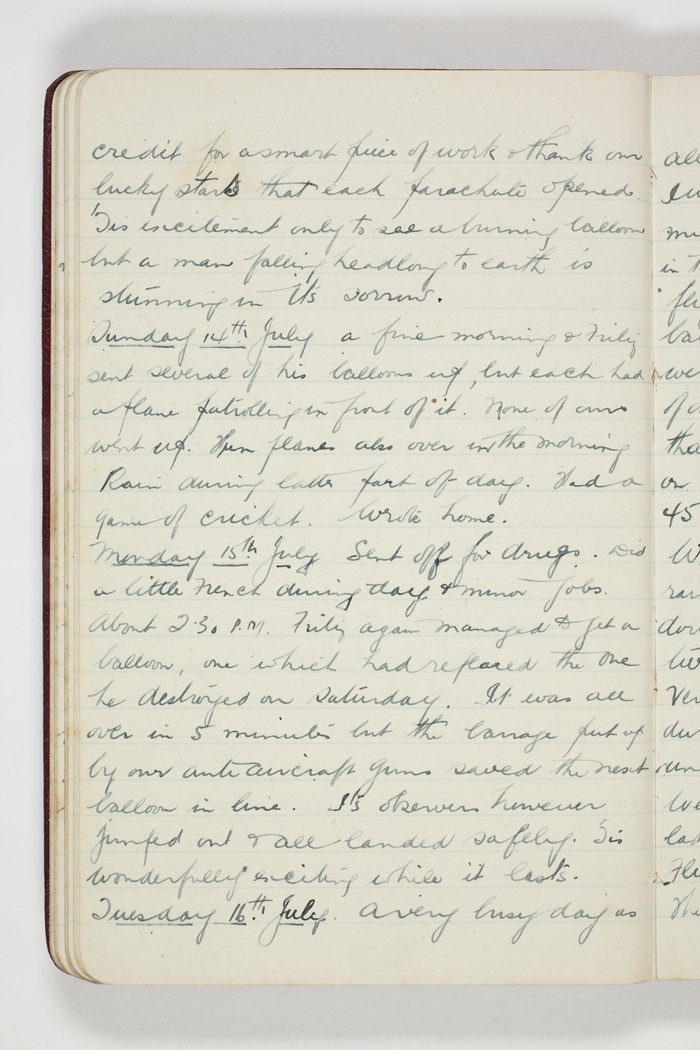 credit for a smart piece of work & thank our
lucky stars that each parachute opened.
'Tis excitement only to see a burning balloon
but a man falling headlong to earth is
stunning in its sorrow.
Sunday 14th July a fine morning & Fritz
sent several of his balloons up, but each had
a plane patrolling in front of it. None of ours
went up. Hun planes also over in the morning
Rain during latter part of day. Had a
game of cricket. Wrote home.
Monday 15th July Sent off for drugs. Did
a little French during day & minor jobs.
About 2.30 P.M. Fritz again managed to get a
balloon, one which had replaced the one
he destroyed on Saturday. It was all
over in 5 minutes but the barrage put up
by our anti aircraft guns saved the next
balloon in line. It's observers however
jumped out & all landed safely. 'Tis
wonderfully exciting while it lasts.
Tuesday 16th July. A very busy day as
all
in
of
or
45